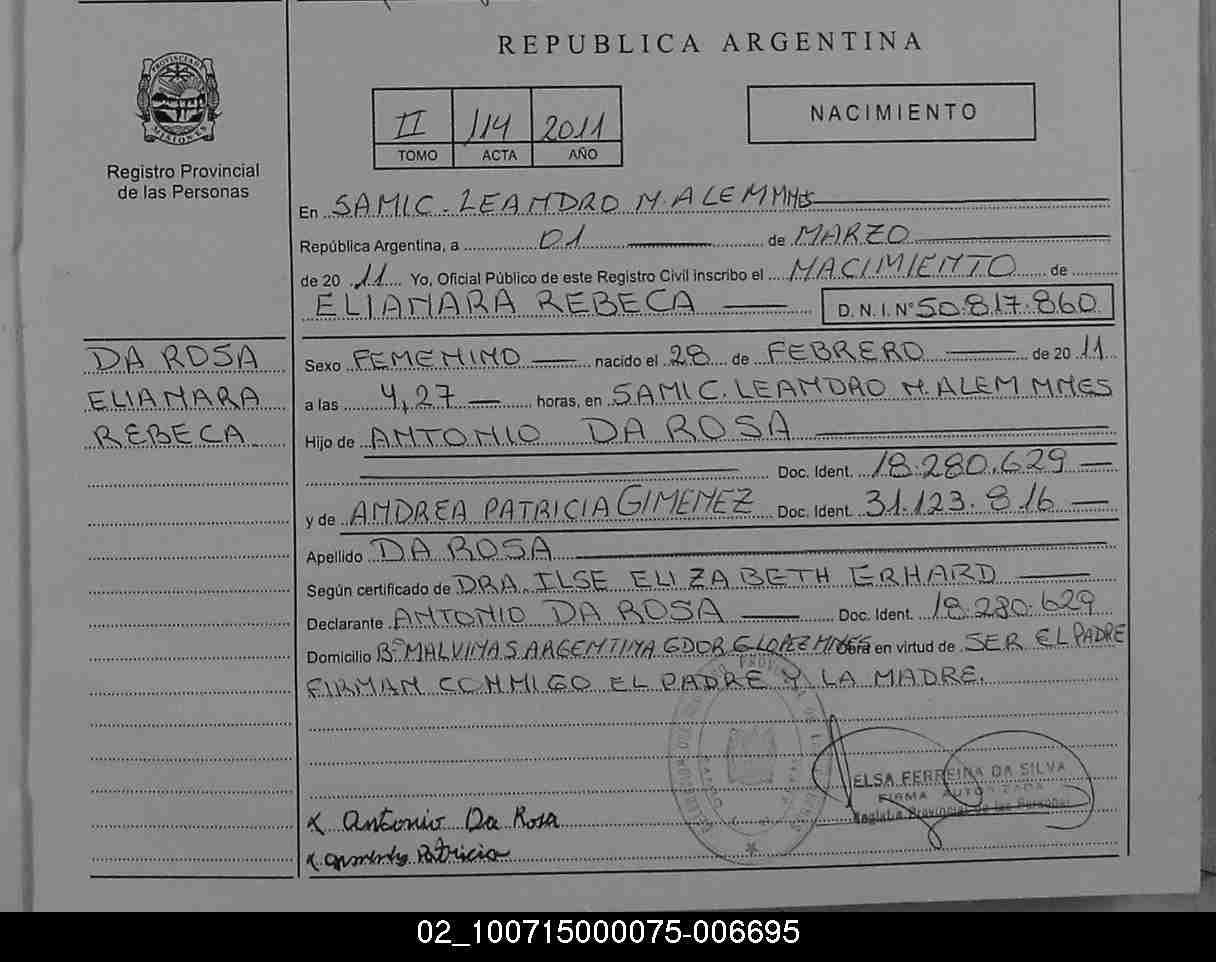 REPUBLICA ARGENTINA
PROVINCIA DE MISIONES
Registro Provincial
de las Personas
II 114 2011
TOMO ACTA AÑO
NACIMIENTO
En SAMIC. LEANDRO N. ALEM MNES
República Argentina, a 01 de MARZO
de 20 11 Yo, Oficial Público de este Registro Civil inscribo el NACIMIENTO de
ELIANARA REBECA D. N. I. N° 50.817.860
DA ROSA
ELIANARA
REBECA
Sexo FEMENINO nacido el 28 de FEBRERO de 20 11
a las 4,27 horas, en SAMIC. LEANDRO N. ALEM MNES
Hijo de ANTONIO DA ROSA
Doc. Ident. 18.280.629
y de ANDREA PATRICIA GIMENEZ Doc. Ident. 31.123.816
Apellido DA ROSA
Según certificado de DRA. ILSE ELIZABETH ERHARD
Declarante ANTONIO DA ROSA Doc. Ident. 18.280.629
Domicilio B° MALVINAS ARGENTINA GDOR G LOPEZ MNES Obra en virtud de SER EL PADRE
FIRMAN CONMIGO EL PADRE Y LA MADRE.
ELSA FERREIRA DA SILVA
FIRMA AUTORIZADA
Registro Provincial de las Personas
x Antonio Da Rosa
x Patricia
02_100715000075-006695